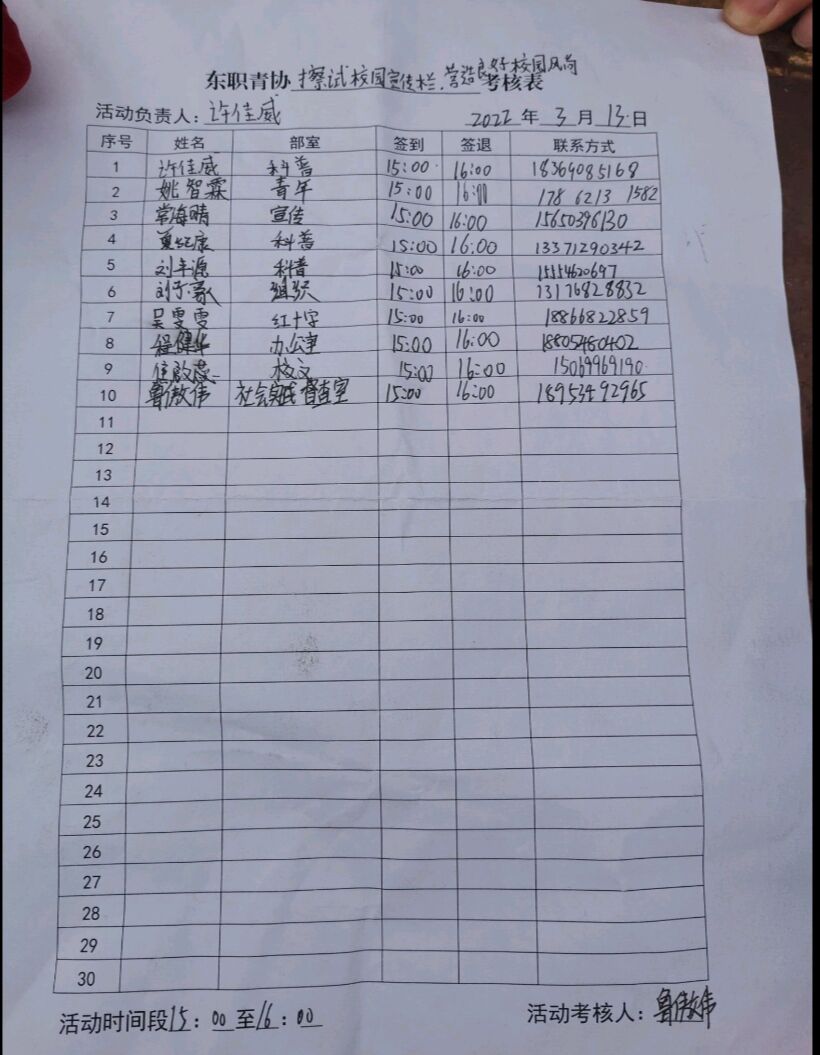 东职青协 擦试校园宣传栏,营造良好校园风尚 考核表
活动负责人：许佳威 2022 年 3 月 13 日
序号 姓名 部室 签到 签退 联系方式
1 许佳威 科普 15:00 16:00 18369085168
2 姚智霖 青年 15:00 16:00 178 6213 1582
3 常海晴 宣传 15:00 16:00 15650396130
4 康 科普 15:00 16:00 13371290342
5 刘年源 科普 15:00 16:00 15554620697
6 刘子豪 组织 15:00 16:00 13176828832
7 吴雯雯 红十字 15:00 16:00 18866822859
8 程健华 办公室 15:00 16:00 18805480402
9 校文 15:00 16:00 15069969190
10 鲁傲伟 社会实践督查室 15:00 16:00 18953492965
11
12
13
14
15
16
17
18
19
20
21
22
23
24
25
26
27
28
29
30
活动时间段15：00 至16：00 活动考核人：鲁傲伟